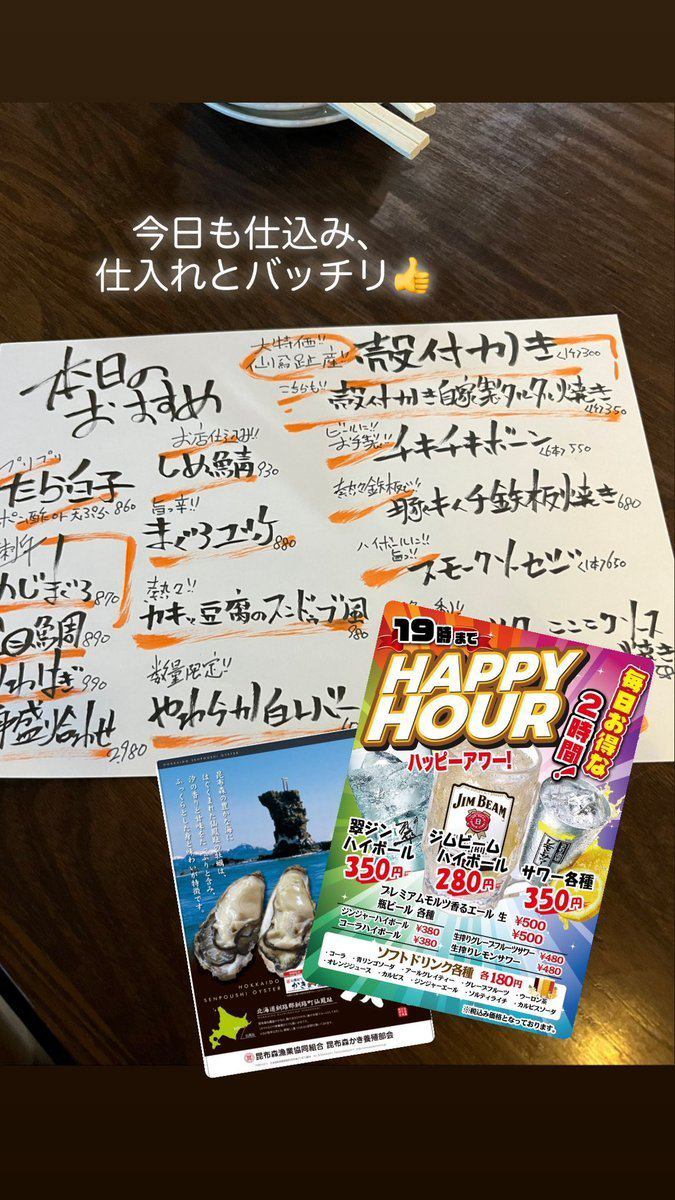 今日も仕込み、
仕入れとバッチリ👍
本日の
おすすめ
大特価!!
仙鳳趾産!!
殻付かき
300
こちらも!!
殻付かき自家製タルタル焼き
350
ビールに!!
お手製!!
チキチキボーン
550
熱々鉄板で!!
豚キムチ鉄板焼き 680
ハイボールに!!
旨っ!!
スモークソーセージ
650
お店仕込み!!
しめ鯖 930
旨っ辛!!
まぐろユッケ
880
熱々!!
カキと豆腐のスンドゥブ風
980
数量限定!!
やわらか白レバー
プリプリ
たら白子
ポン酢or天ぷら 860
めじまぐろ 870
鯛 890
わはぎ 990
盛り合わせ
2980
19時まで
HAPPY
HOUR
ハッピーアワー!
毎日お得な
2時間!
JIM BEAM
翠ジン
ハイボール
350円
ジムビーム
ハイボール
280円
サワー各種
350円
プレミアムモルツ香るエール 生 ¥500
瓶ビール 各種 ¥500
ジンジャーハイボール ¥380
コーラハイボール ¥380
生搾りグレープフルーツサワー ¥480
生搾りレモンサワー ¥480
ソフトドリンク各種 各180円
・コーラ ・青リンゴソーダ ・アールグレイティー ・グレープフルーツ ・ウーロン茶
・オレンジジュース ・カルピス ・ジンジャーエール ・ソルティライチ ・カルピスソーダ
※税込み価格となっております。
HOKKAIDO SENPOUSHI OYSTER
昆布森の豊かな海に
はぐくまれた仙鳳趾の牡蠣は、
汐の香りと甘味をたっぷりと含み、
ふっくらとした身と味わいが特徴です。
HOKKAIDO
SENPOUSHI OYSTER
北海道釧路郡釧路町仙鳳趾
昆布森漁業協同組合 昆布森かき養殖部会